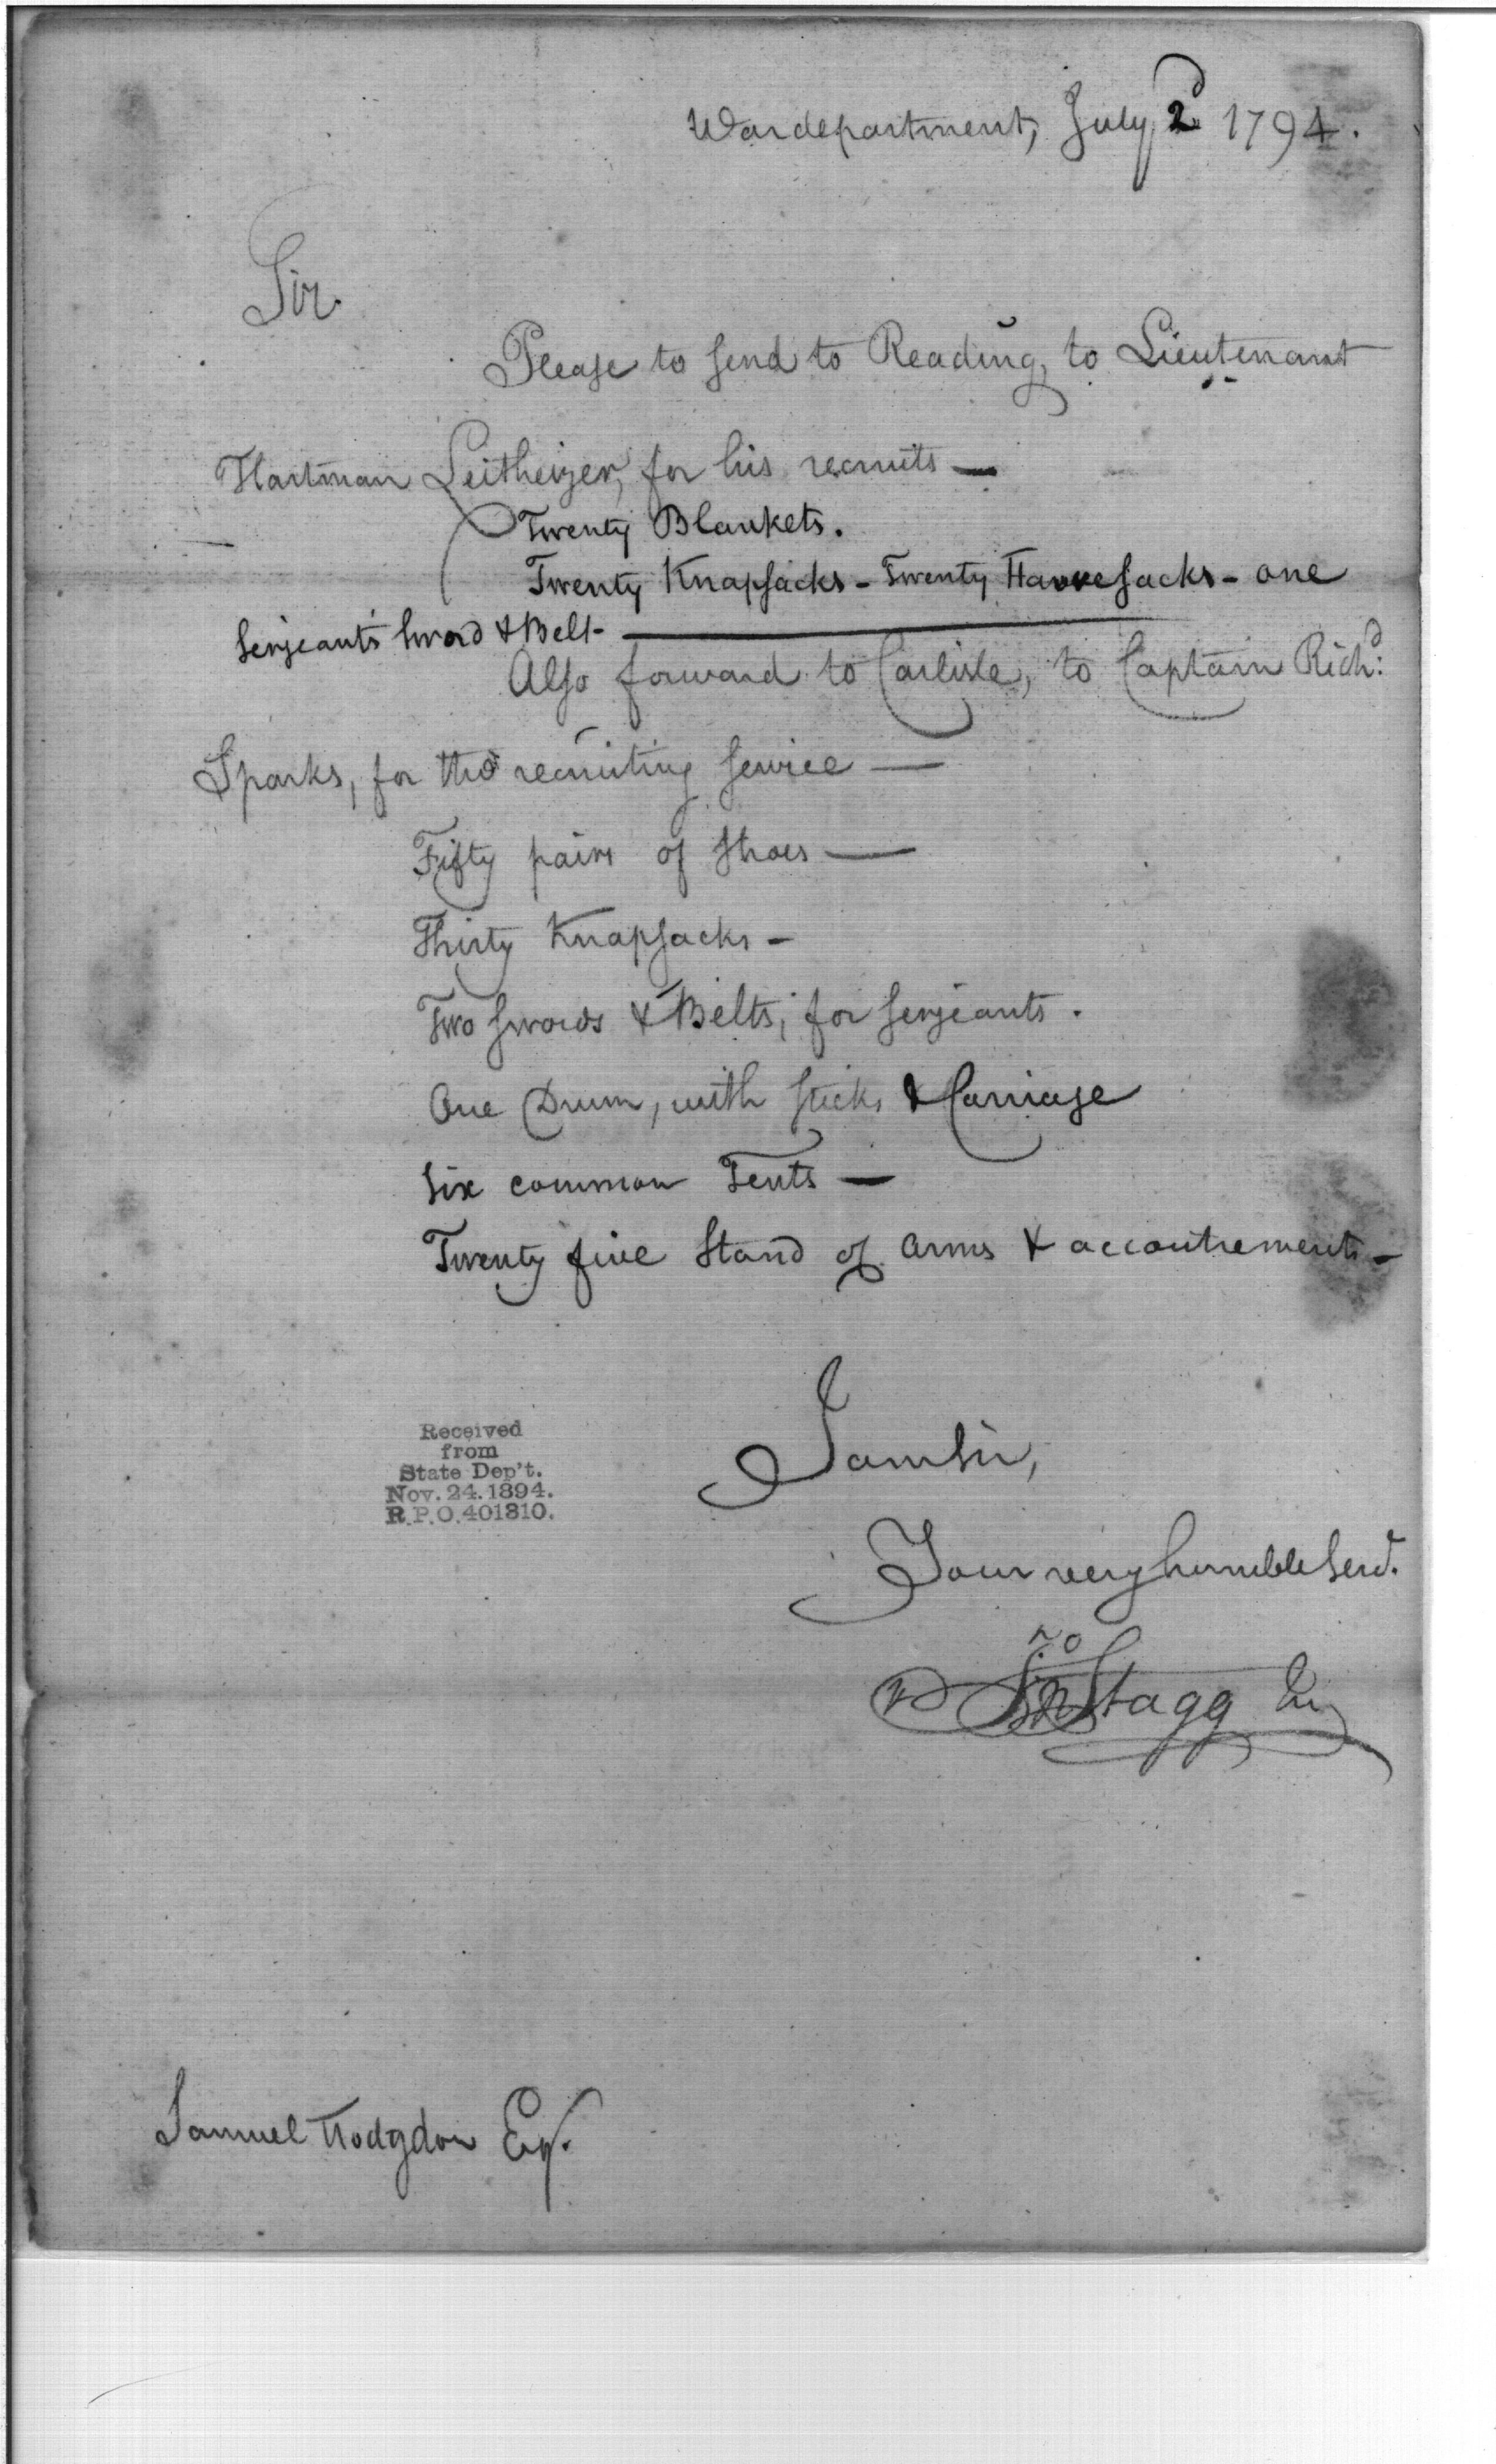 War department, July 2d 1794.
Sir.
Please to send to Reading, to Lieutenant
Hartman Leitheizer, for his recruits —
Twenty Blankets.
Twenty Knapsacks - Twenty Haversacks - one
serjeants sword & Belt -
Also forward to Carlisle, to Captain Richd:
Sparks, for the recruiting service —
Fifty pairs of shoes —
Thirty Knapsacks -
Two swords & Belts, for serjeants.
One Drum, with sticks & Carriage
six common Tents —
Twenty five stand of arms & accoutrements -
I am sir,
Your very humble servt.
Jno Stagg Jr
Received
from
State Dep't.
Nov. 24. 1894.
R.P.O. 401810.
Samuel Hodgdon Esqr.